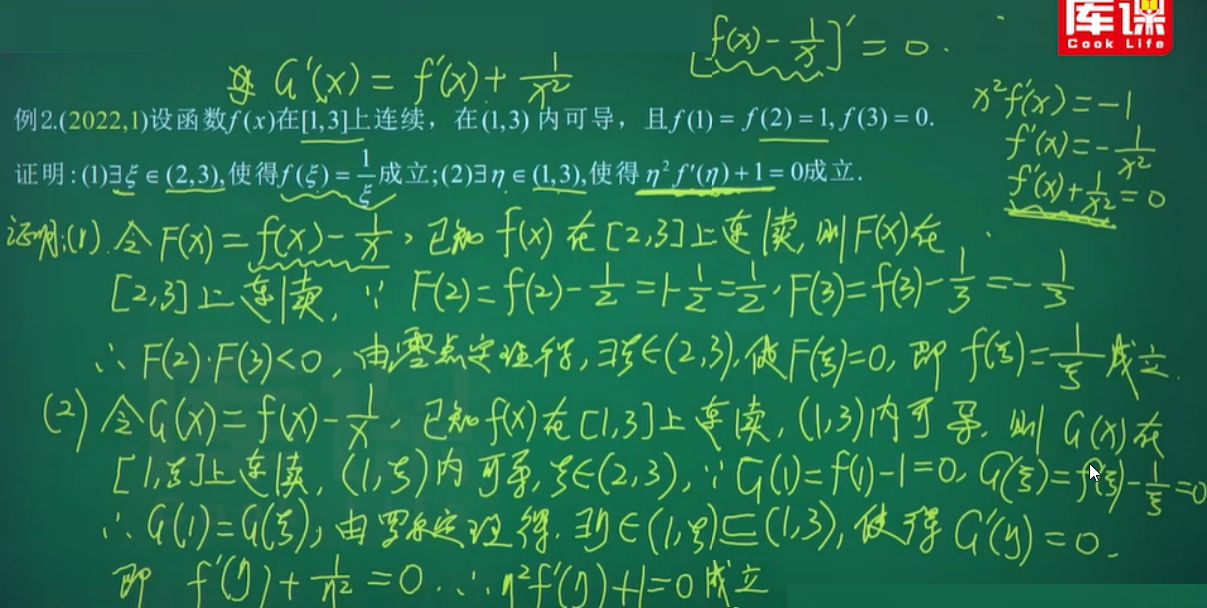 库课
Cook Life
[f(x)-1/x]'=0.
G'(x)=f'(x)+1/x²
x²f'(x)=-1
f'(x)=-1/x²
f'(x)+1/x²=0
例2.(2022,1)设函数f(x)在[1,3]上连续，在(1,3)内可导，且f(1)=f(2)=1,f(3)=0.
证明:(1)∃ξ∈(2,3),使得f(ξ)=1/ξ成立;(2)∃η∈(1,3),使得η²f'(η)+1=0成立.
证明:(1).令F(x)=f(x)-1/x,已知f(x)在[2,3]上连续,则F(x)在
[2,3]上连续, ∵F(2)=f(2)-1/2=1-1/2=1/2,F(3)=f(3)-1/3=-1/3
∴F(2)·F(3)<0,由零点定理得,∃ξ∈(2,3),使F(ξ)=0,即f(ξ)=1/ξ成立.
(2)令G(x)=f(x)-1/x,已知f(x)在[1,3]上连续,(1,3)内可导,则G(x)在
[1,ξ]上连续,(1,ξ)内可导,ξ∈(2,3),∵G(1)=f(1)-1=0,G(ξ)=f(ξ)-1/ξ=0
∴G(1)=G(ξ),由罗尔定理得.∃η∈(1,ξ)⊆(1,3),使得G'(η)=0.
即f'(η)+1/η²=0.∴η²f'(η)+1=0成立